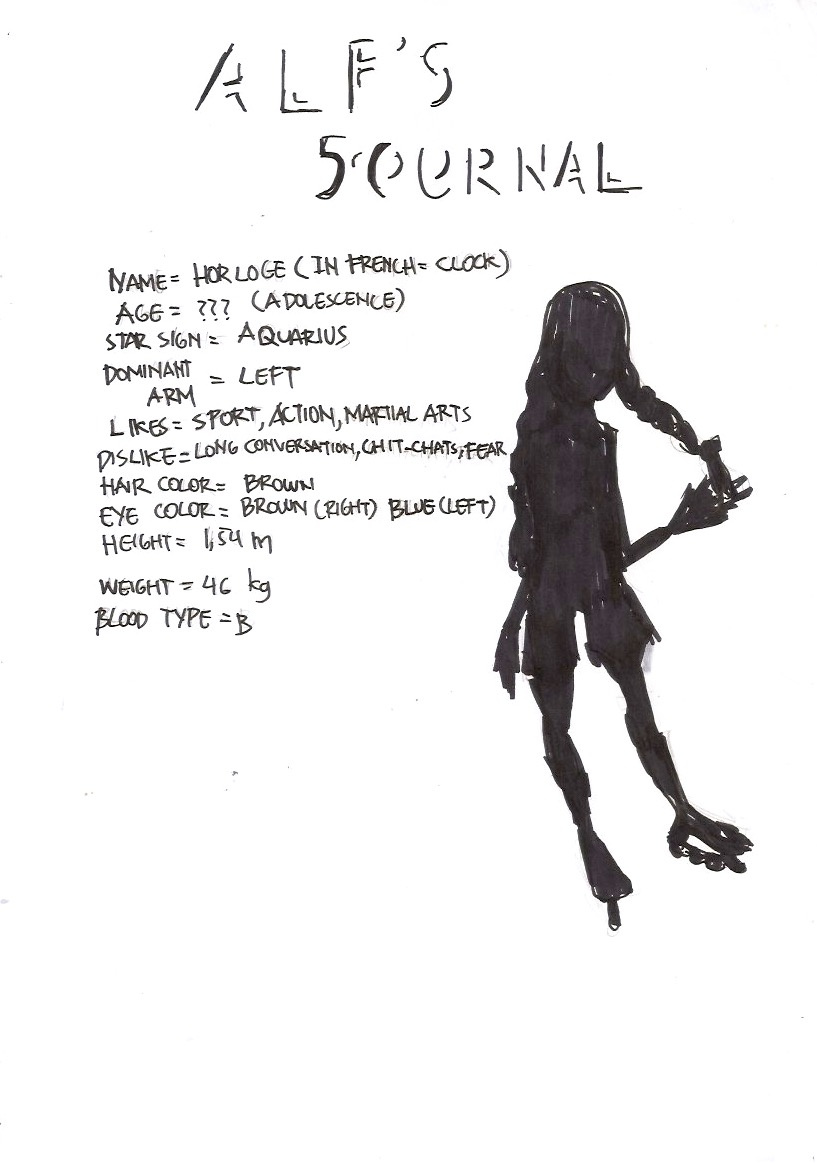 ALF'S
JOURNAL
NAME = HORLOGE (IN FRENCH = CLOCK)
AGE = ??? (ADOLESCENCE)
STAR SIGN = AQUARIUS
DOMINANT
ARM = LEFT
LIKES = SPORT, ACTION, MARTIAL ARTS
DISLIKE = LONG CONVERSATION, CHIT-CHATS, FEAR
HAIR COLOR = BROWN
EYE COLOR = BROWN (RIGHT) BLUE (LEFT)
HEIGHT = 1,54 m
WEIGHT = 46 kg
BLOOD TYPE = B